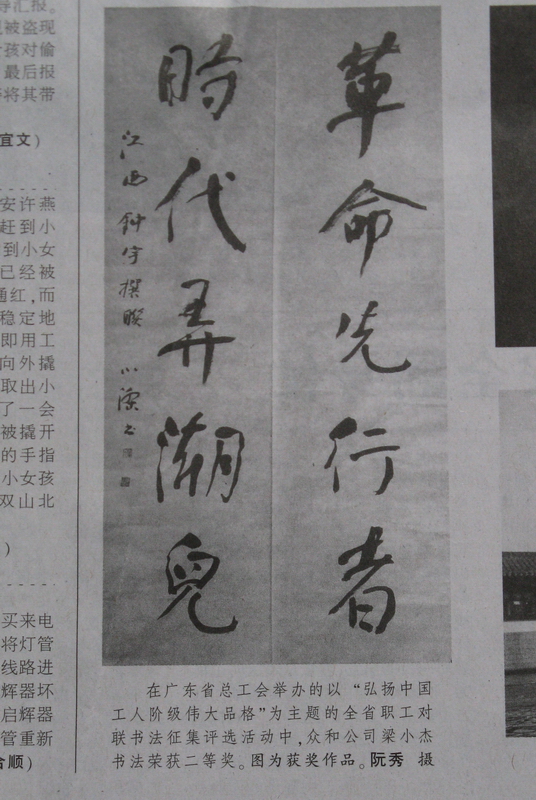 导汇报。
被盗现
孩对偷
最后报
将其带
宜文）
安许燕
赶到小
到小女
已经被
通红，而
稳定地
即用工
向外撬
取出小
了一会
被撬开
的手指
小女孩
双山北
）
买来电
将灯管
线路进
辉器坏
启辉器
管重新
合顺）
革命先行者
時代弄潮兒
江西钟宇撰联 小濂书
在广东省总工会举办的以“弘扬中国
工人阶级伟大品格”为主题的全省职工对
联书法征集评选活动中，众和公司梁小杰
书法荣获二等奖。图为获奖作品。阮秀 摄